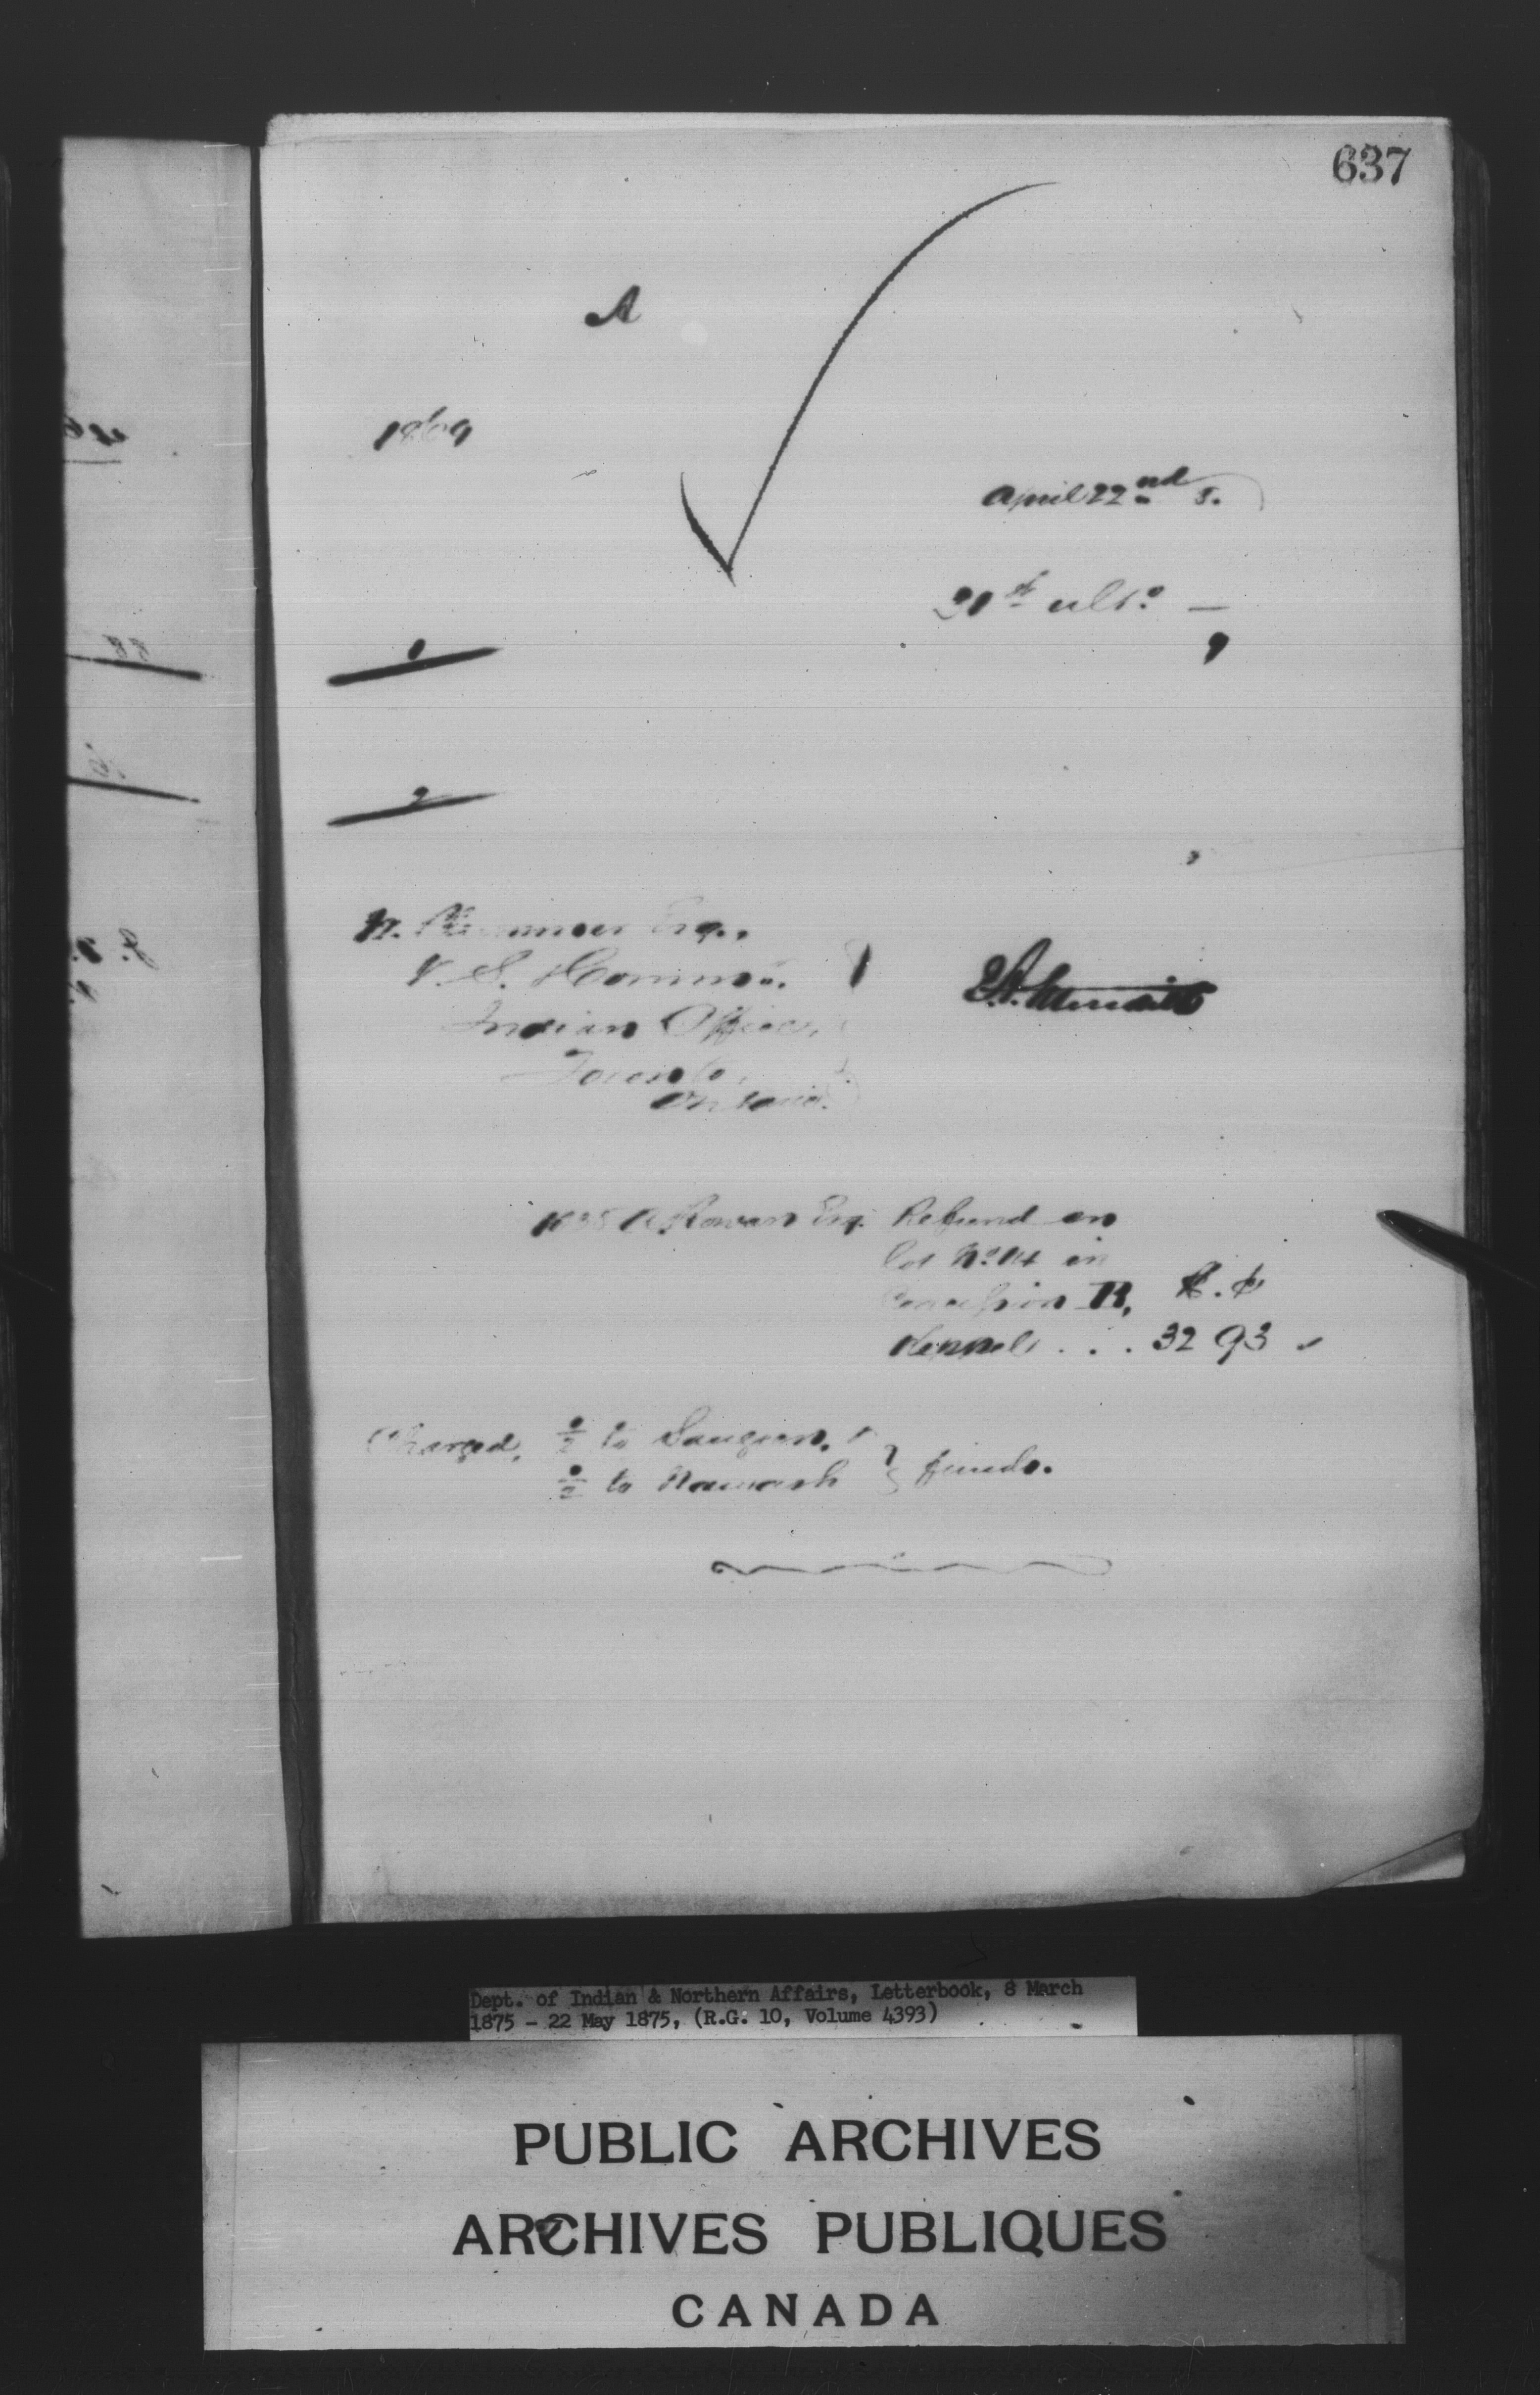 637
A
1869
April 22nd 5.
ulto —
1
9
2
Esq.,
V. S. Commr.
Indian Office,
Toronto,
Ontario.
Rowan Esq. Refund on
lot No. 14 in
Concession B, $. ¢
Keppel . . . 32 93
Charged, ½ to Saugeen,
½ to Nawash } funds.
Dept. of Indian & Northern Affairs, Letterbook, 8 March
1875 - 22 May 1875, (R.G. 10, Volume 4393)
PUBLIC ARCHIVES
ARCHIVES PUBLIQUES
CANADA